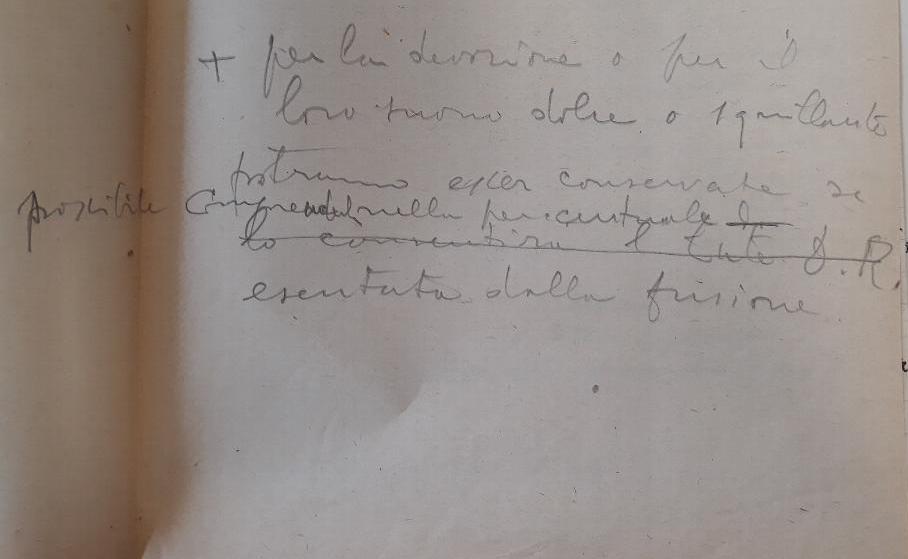 + per la devozione o per il
loro suono dolce o squillante
potranno esser conservate se
possibile comprendendole nella percentuale
lo consentirà l'Ente D.R.
esentata dalla fusione.